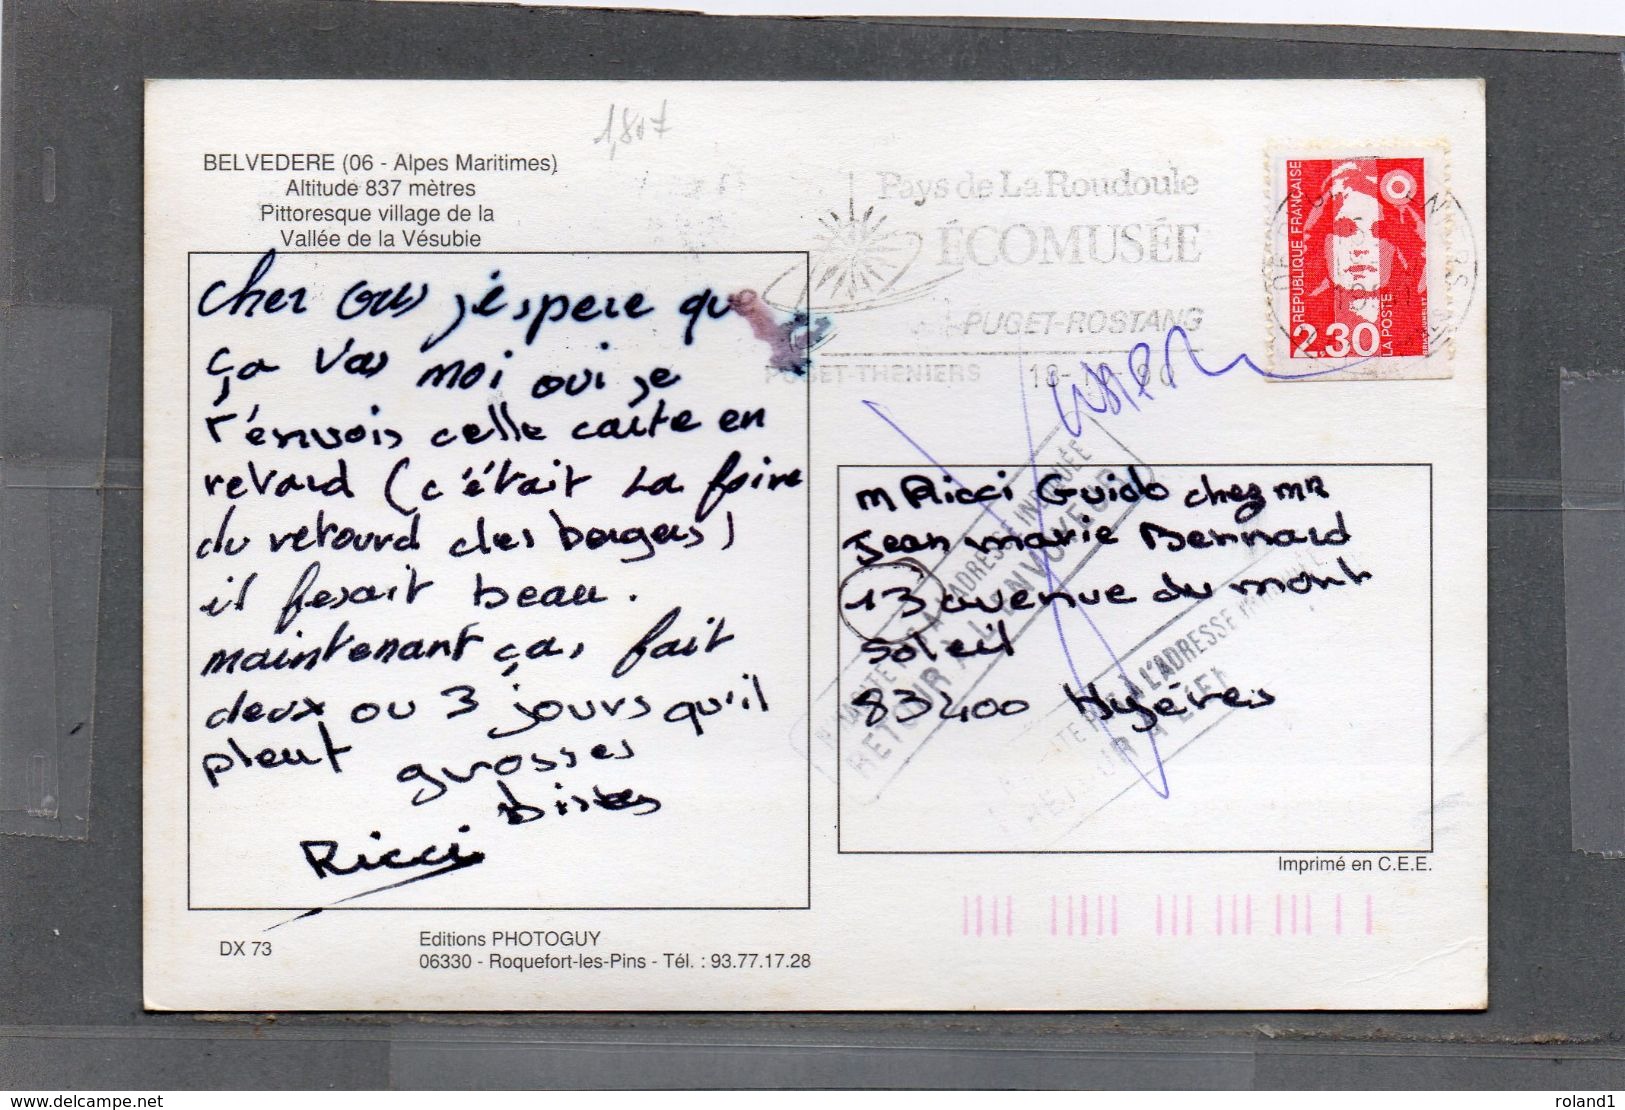 1,807
BELVEDERE (06 - Alpes Maritimes)
Altitude 837 mètres
Pittoresque village de la
Vallée de la Vésubie
cher
j'éspere que
ça Vas moi oui je
t'énvois celle carte en
retard (c'était La foire
du retourd des bergers)
il fesait beau.
maintenant ças fait
deux ou 3 jours qu'il
pleut grosses
bises
Ricci
DX 73
Editions PHOTOGUY
06330 - Roquefort-les-Pins - Tél. : 93.77.17.28
Pays de La Roudoule
ÉCOMUSÉE
PUGET-ROSTANG
PUGET-THENIERS 18-10-90
REPUBLIQUE FRANÇAISE
2,30
LA POSTE
m Ricci Guido chez mR
Jean marie Bernard
13 avenue du mont
soleil
83400 Hyéres
N'HABITE PAS A L'ADRESSE INDIQUÉE
RETOUR A L'ENVOYEUR
L'ADRESSE
Imprimé en C.E.E.
www.delcampe.net
roland1